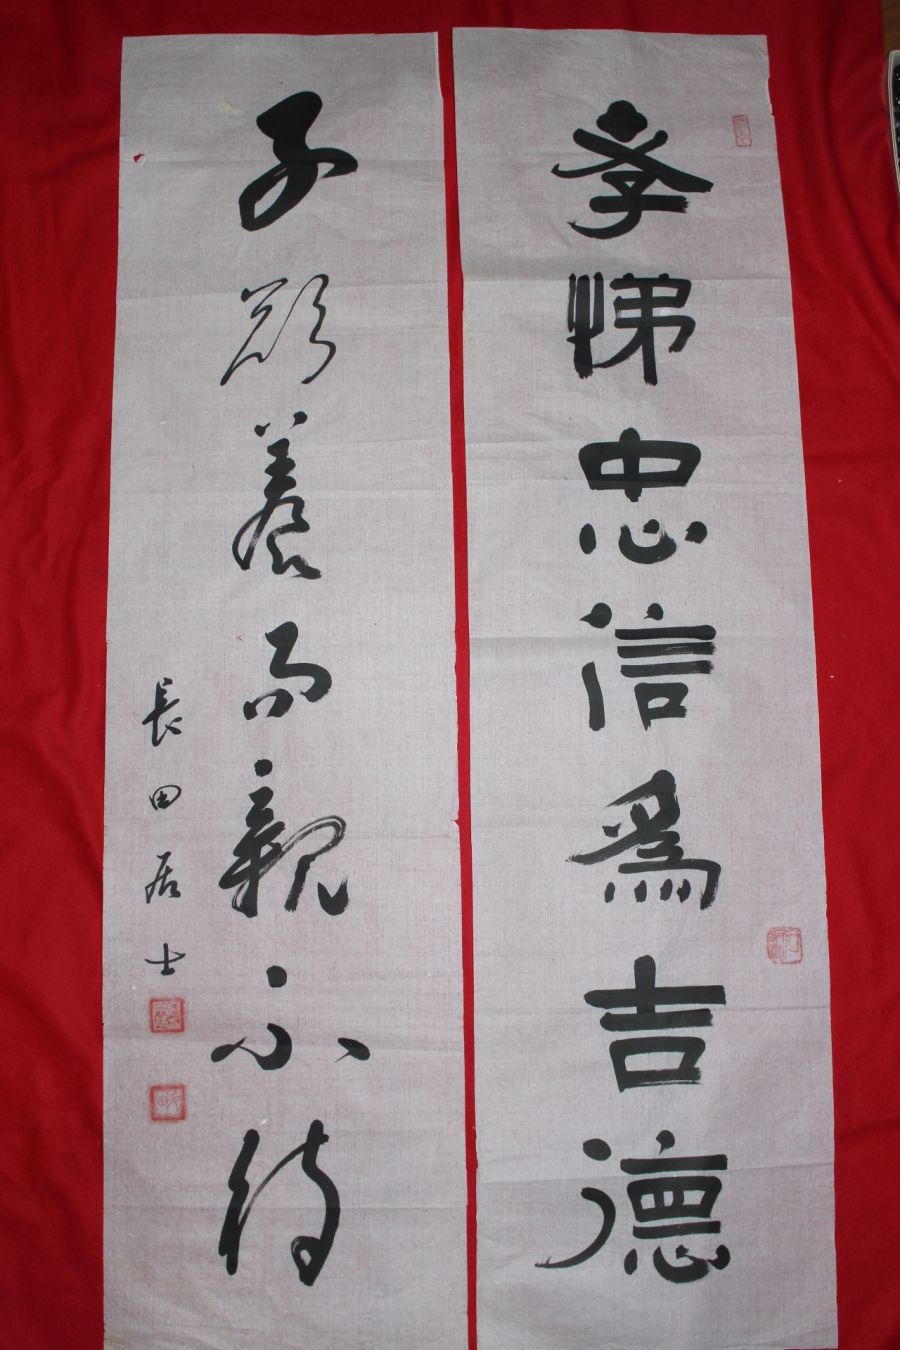 孝悌忠信爲吉德
子欲養而親不待
長田居士